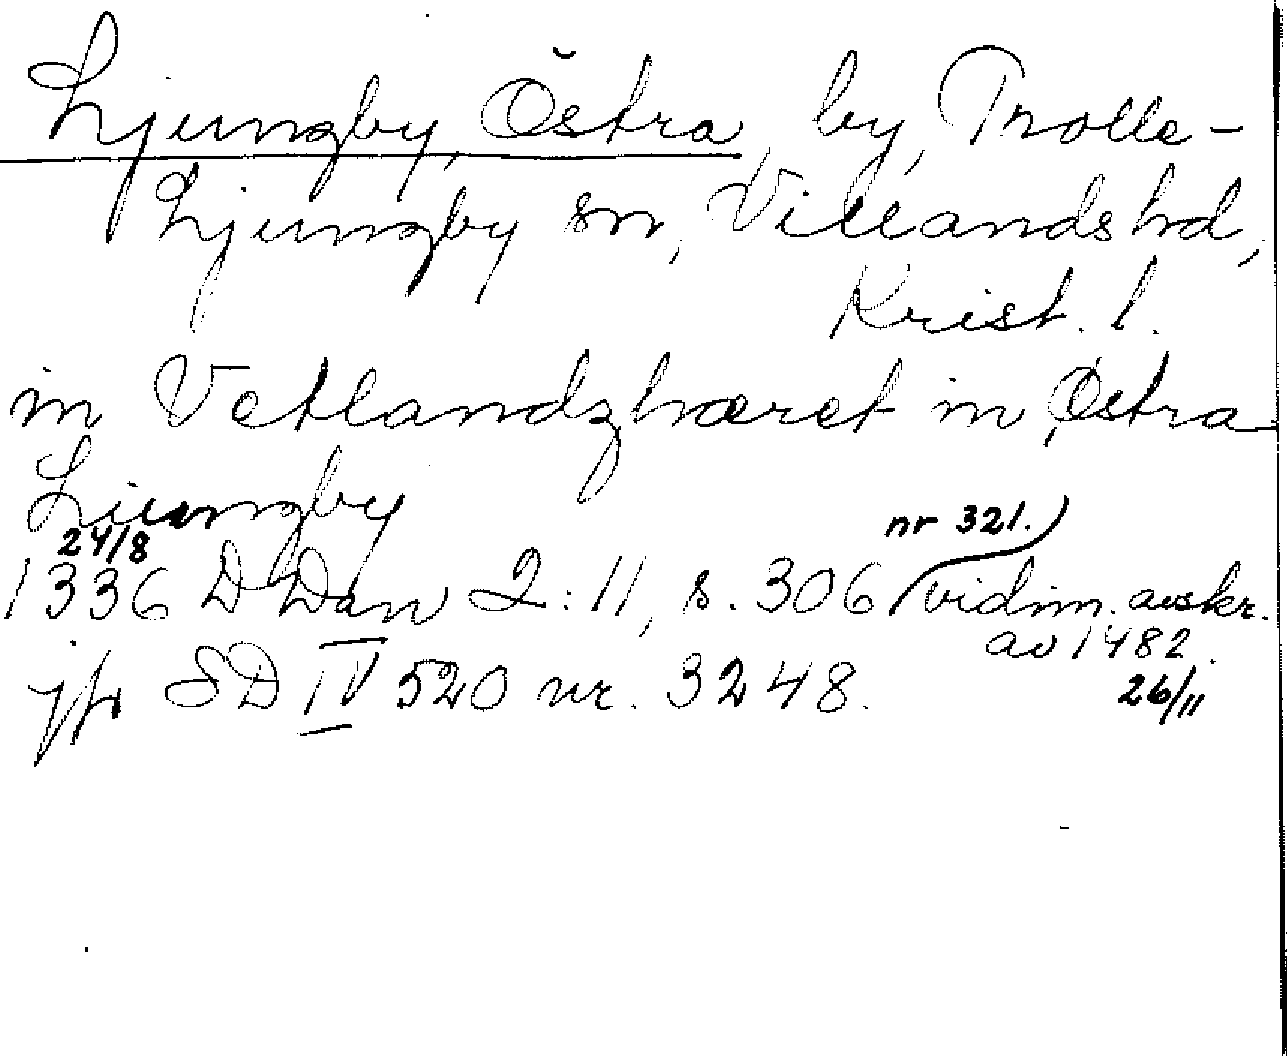 Ljungby, Östra, by, Trolle-
Ljungby sn, Villands hd,
Krist. l.
in Vetlandzhæret in Østra
Liungby
24/8 nr 321.
1336 D Dan 2:11, s. 306 (vidim. avskr.
av 1482.
jfr SD IV 520 nr. 3248. 26/11